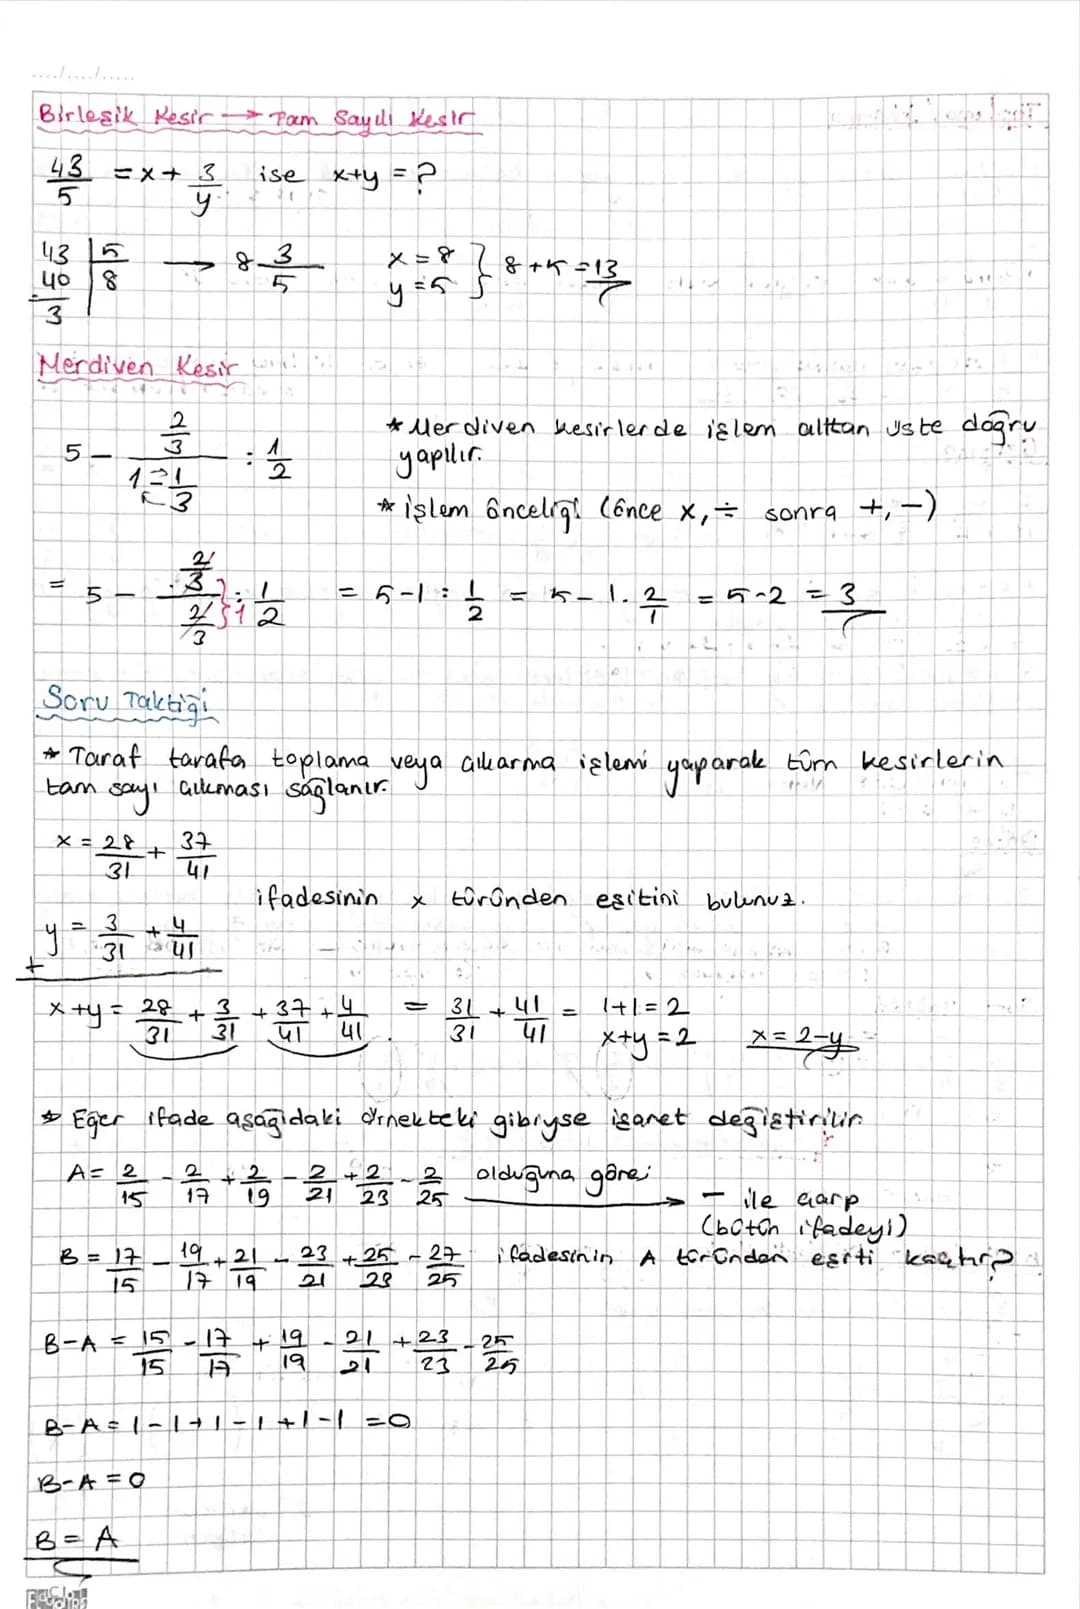 Birleşik Kesir → Tam Sayılı Kesir
43/5 = x + 3/y ise x+y = ?
43 | 5 → 8 3/5 x = 8 } 8 + 5 = 13
40 | 8 y = 5
- 3
Merdiven Kesir
5 - (2/3)/(1 - 1/3) : 1/2
* Merdiven kesirlerde işlem alttan üste doğru
yapılır.
* işlem önceliği (önce x, ÷ sonra +, -)
= 5 - (2/3)/(2/3) } 1 : 1/2 = 5-1 : 1/2 = 5 - 1 . 2/1 = 5-2 = 3
Soru Taktiği
* Taraf tarafa toplama veya çıkarma işlemi yaparak tüm kesirlerin
tam sayı çıkması sağlanır.
x = 28/31 + 37/41
ifadesinin x türünden eşitini bulunuz.
y = 3/31 + 4/41
+
x+y = 28/31 + 3/31 + 37/41 + 4/41 = 31/31 + 41/41 = 1+1 = 2
x+y = 2 x = 2-y
* Eğer ifade aşağıdaki örnekteki gibiyse işaret değiştirilir.
A = 2/15 - 2/17 + 2/19 - 2/21 + 2/23 - 2/25 olduğuna göre; → - ile çarp
(bütün ifadeyi)
B = 17/15 - 19/17 + 21/19 - 23/21 + 25/23 - 27/25 ifadesinin A türünden eşiti kaçtır?
B-A = 15/15 - 17/17 + 19/19 - 21/21 + 23/23 - 25/25
B-A = 1-1+1-1+1-1 = 0
B-A = 0
B = A